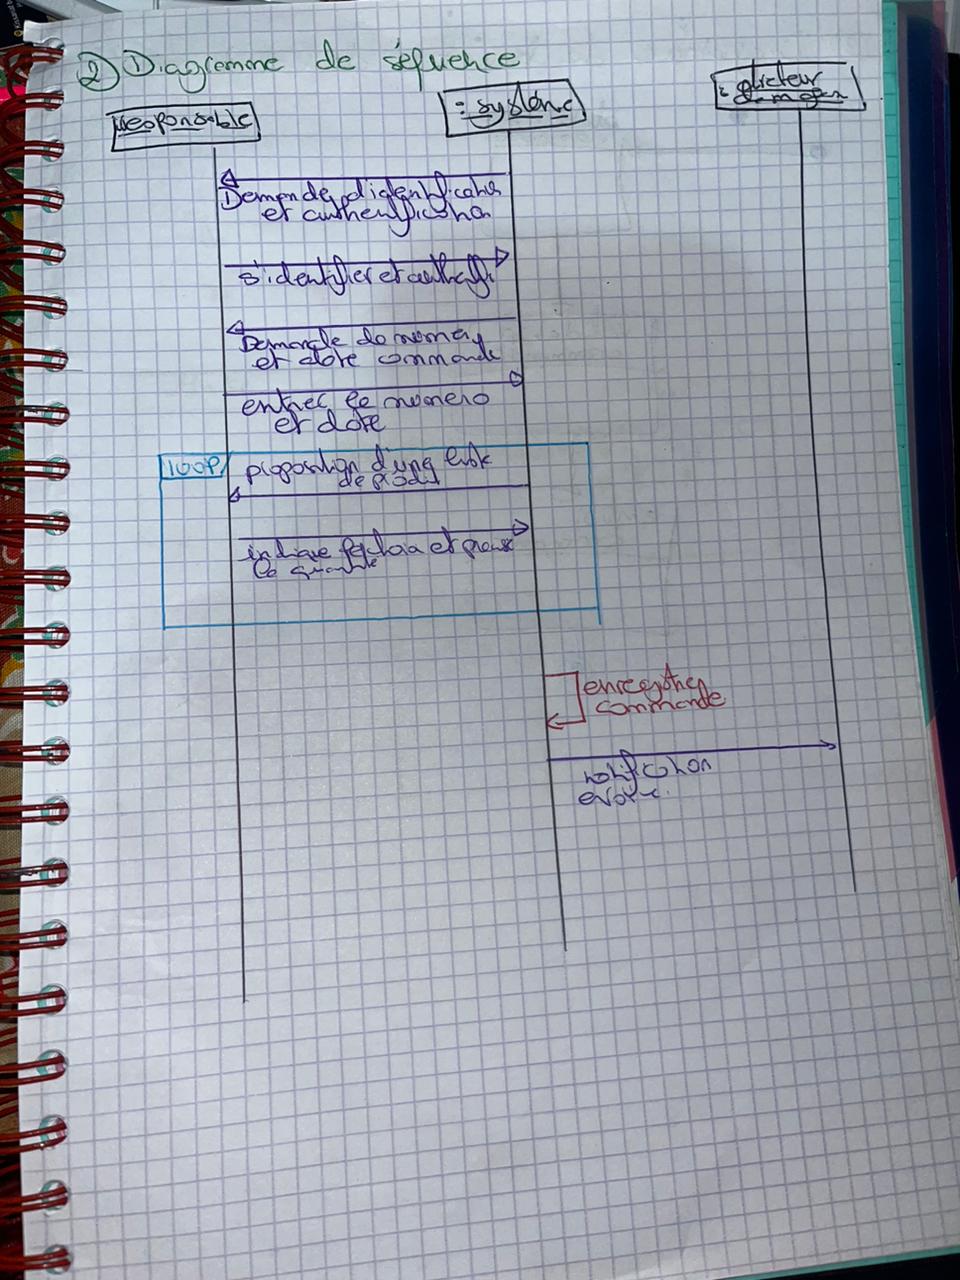 2) Diagramme de séquence
: responsable
: système
: directeur
de magasin
Demande d'identification
et authentification
s'identifier et authentifi
Demande de numero
et date commande
entrer le numero
et date
LOOP
proposition d'une liste
de produit
indique le choix et
la quantité
enregistrer
commande
notification